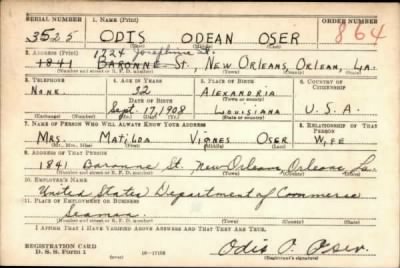 SERIAL NUMBER 1. NAME (Print) ORDER NUMBER
3525 ODIS ODEAN OSER 864
(First) (Middle) (Last)
2. ADDRESS (Print) 1724 Josephine St.
1841 BARONNE St., NEW ORLEANS, ORLEAN, LA.
(Number and street or R. F. D. number) (Town) (County) (State)
3. TELEPHONE 4. AGE IN YEARS 5. PLACE OF BIRTH 6. COUNTRY OF CITIZENSHIP
NONE. 32 ALEXANDRIA
DATE OF BIRTH (Town or county)
Sept. 17, 1908 LOUISIANA U. S. A.
(Mo.) (Day) (Yr.) (State or country)
7. NAME OF PERSON WHO WILL ALWAYS KNOW YOUR ADDRESS 8. RELATIONSHIP OF THAT PERSON
MRS. MATILDA OSER WIFE
(Mr., Mrs., Miss) (First) (Middle) (Last)
9. ADDRESS OF THAT PERSON
1841 Baronne St, New Orleans, Orleans La.
(Number and street or R. F. D. number) (Town) (County) (State)
10. EMPLOYER'S NAME
United States Department of Commerce
11. PLACE OF EMPLOYMENT OR BUSINESS
Seaman.
(Number and street or R. F. D. number) (Town) (County) (State)
I AFFIRM THAT I HAVE VERIFIED ABOVE ANSWERS AND THAT THEY ARE TRUE.
REGISTRATION CARD
D. S. S. Form 1 (over) Odis O. Oser.
(Registrant's signature)